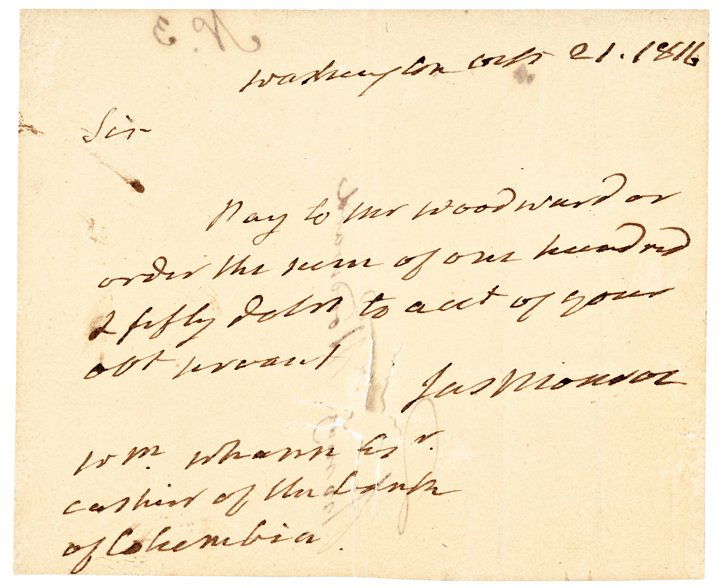 N. 3
Washington Sept 21. 1816
Sir
Pay to Mr Woodward or
order the sum of one hundred
& fifty dolrs to acct of your
obt servant
Jas Monroe
Wm. Whann Esqr.
cashier of the Bank
of Columbia.